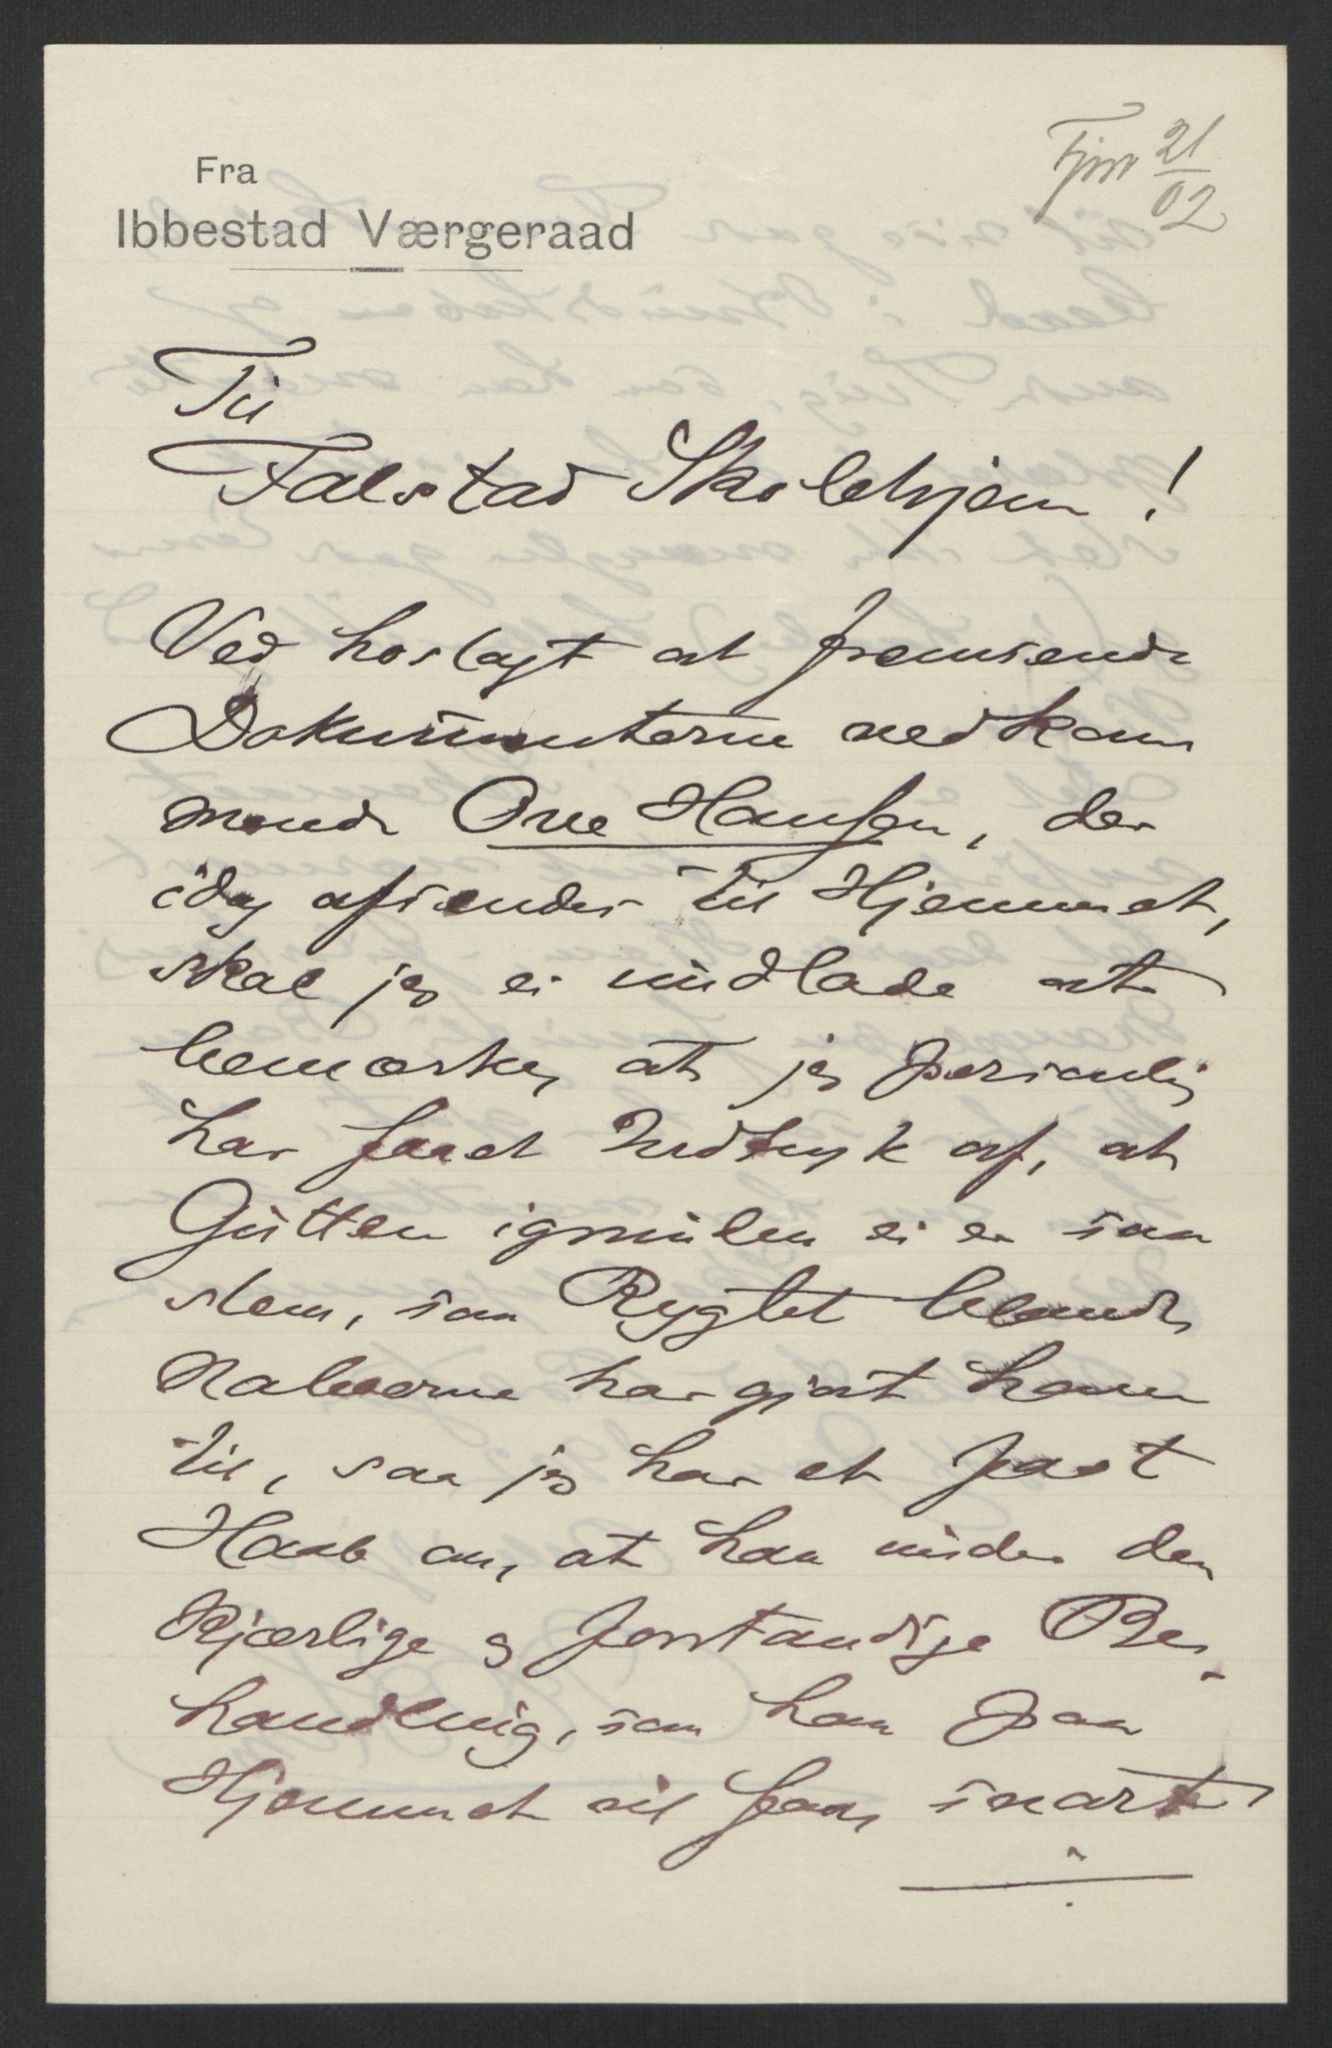 Fjm 21/02
Fra
Ibbestad Værgeraad
Til
Falstad Skolehjem!
Ved hoslagt at fremsende
Dokumenterne vedkom
mende Ove Hansen, der
idag afsendes til Hjemmet,
skal jeg ei undlade at
bemærke, at jeg personlig
har faaet Indtryk af, at
Gutten igrunden ei er saa
slem, som Rygtet blandt
Naboerne har gjort ham
til, saa jeg har et fast
Haab om, at han under den
kjærlige og forstandige Be-
handling, som han paa
Hjemmet vil faa, snart